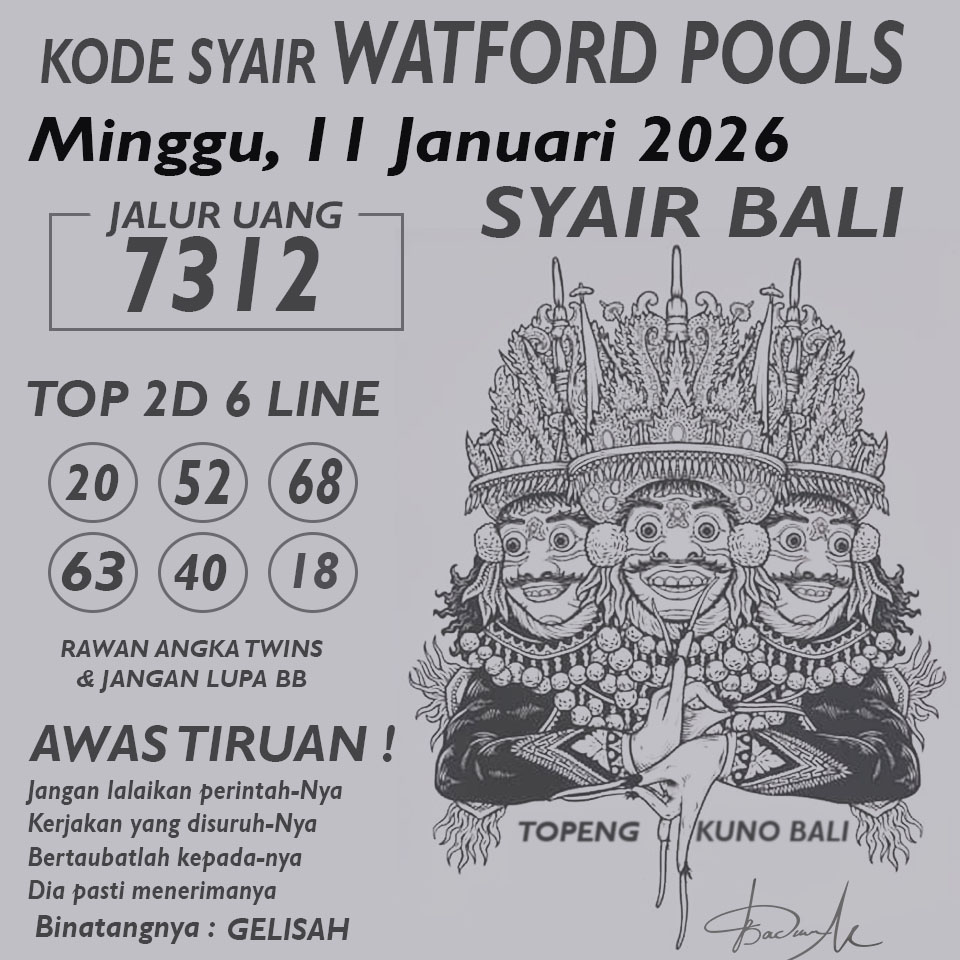 KODE SYAIR WATFORD POOLS
Minggu, 11 Januari 2026
SYAIR BALI
JALUR UANG
7312
TOP 2D 6 LINE
20 52 68
63 40 18
RAWAN ANGKA TWINS
& JANGAN LUPA BB
AWAS TIRUAN !
Jangan lalaikan perintah-Nya
Kerjakan yang disuruh-Nya
Bertaubatlah kepada-nya
Dia pasti menerimanya
Binatangnya : GELISAH
TOPENG KUNO BALI